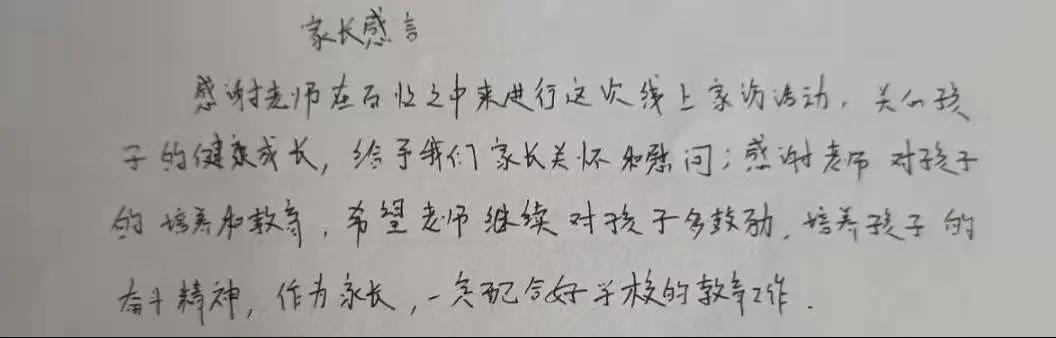 家长感言
感谢老师在百忙之中来进行这次线上家访活动，关心孩
子的健康成长，给予我们家长关怀和慰问；感谢老师对孩子
的培养和教育，希望老师继续对孩子多鼓励，培养孩子的
奋斗精神，作为家长，一定配合好学校的教育工作．